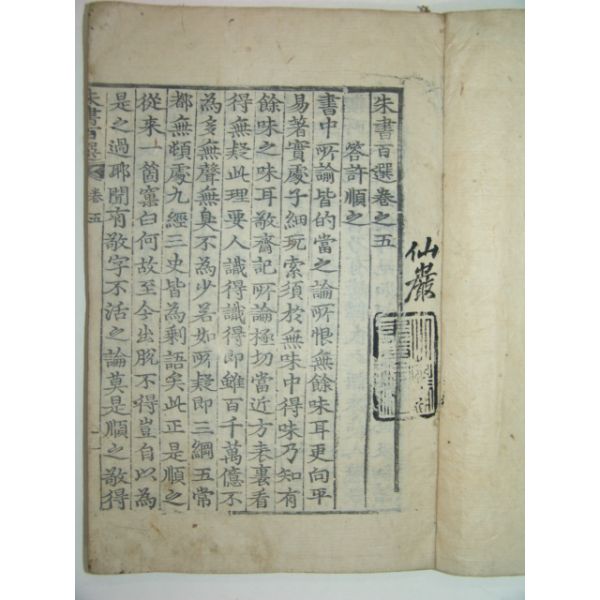 仙巖
朱書百選卷之五
答許順之
書中所論皆的當之論所恨無餘味耳更向平
易著實處子細玩索須於無味中得味乃知有
餘味之味耳敬齋記所論極切當近方表裏看
得無疑此理要人識得識得即雖百千萬億不
為多無聲無臭不為少若如所疑即三綱五常
都無頓處九經三史皆為剩語矣此正是順之
從来一箇窠臼何故至今出脫不得豈自以為
是之過耶聞有敬字不活之論莫是順之敬得
朱書百選 卷五